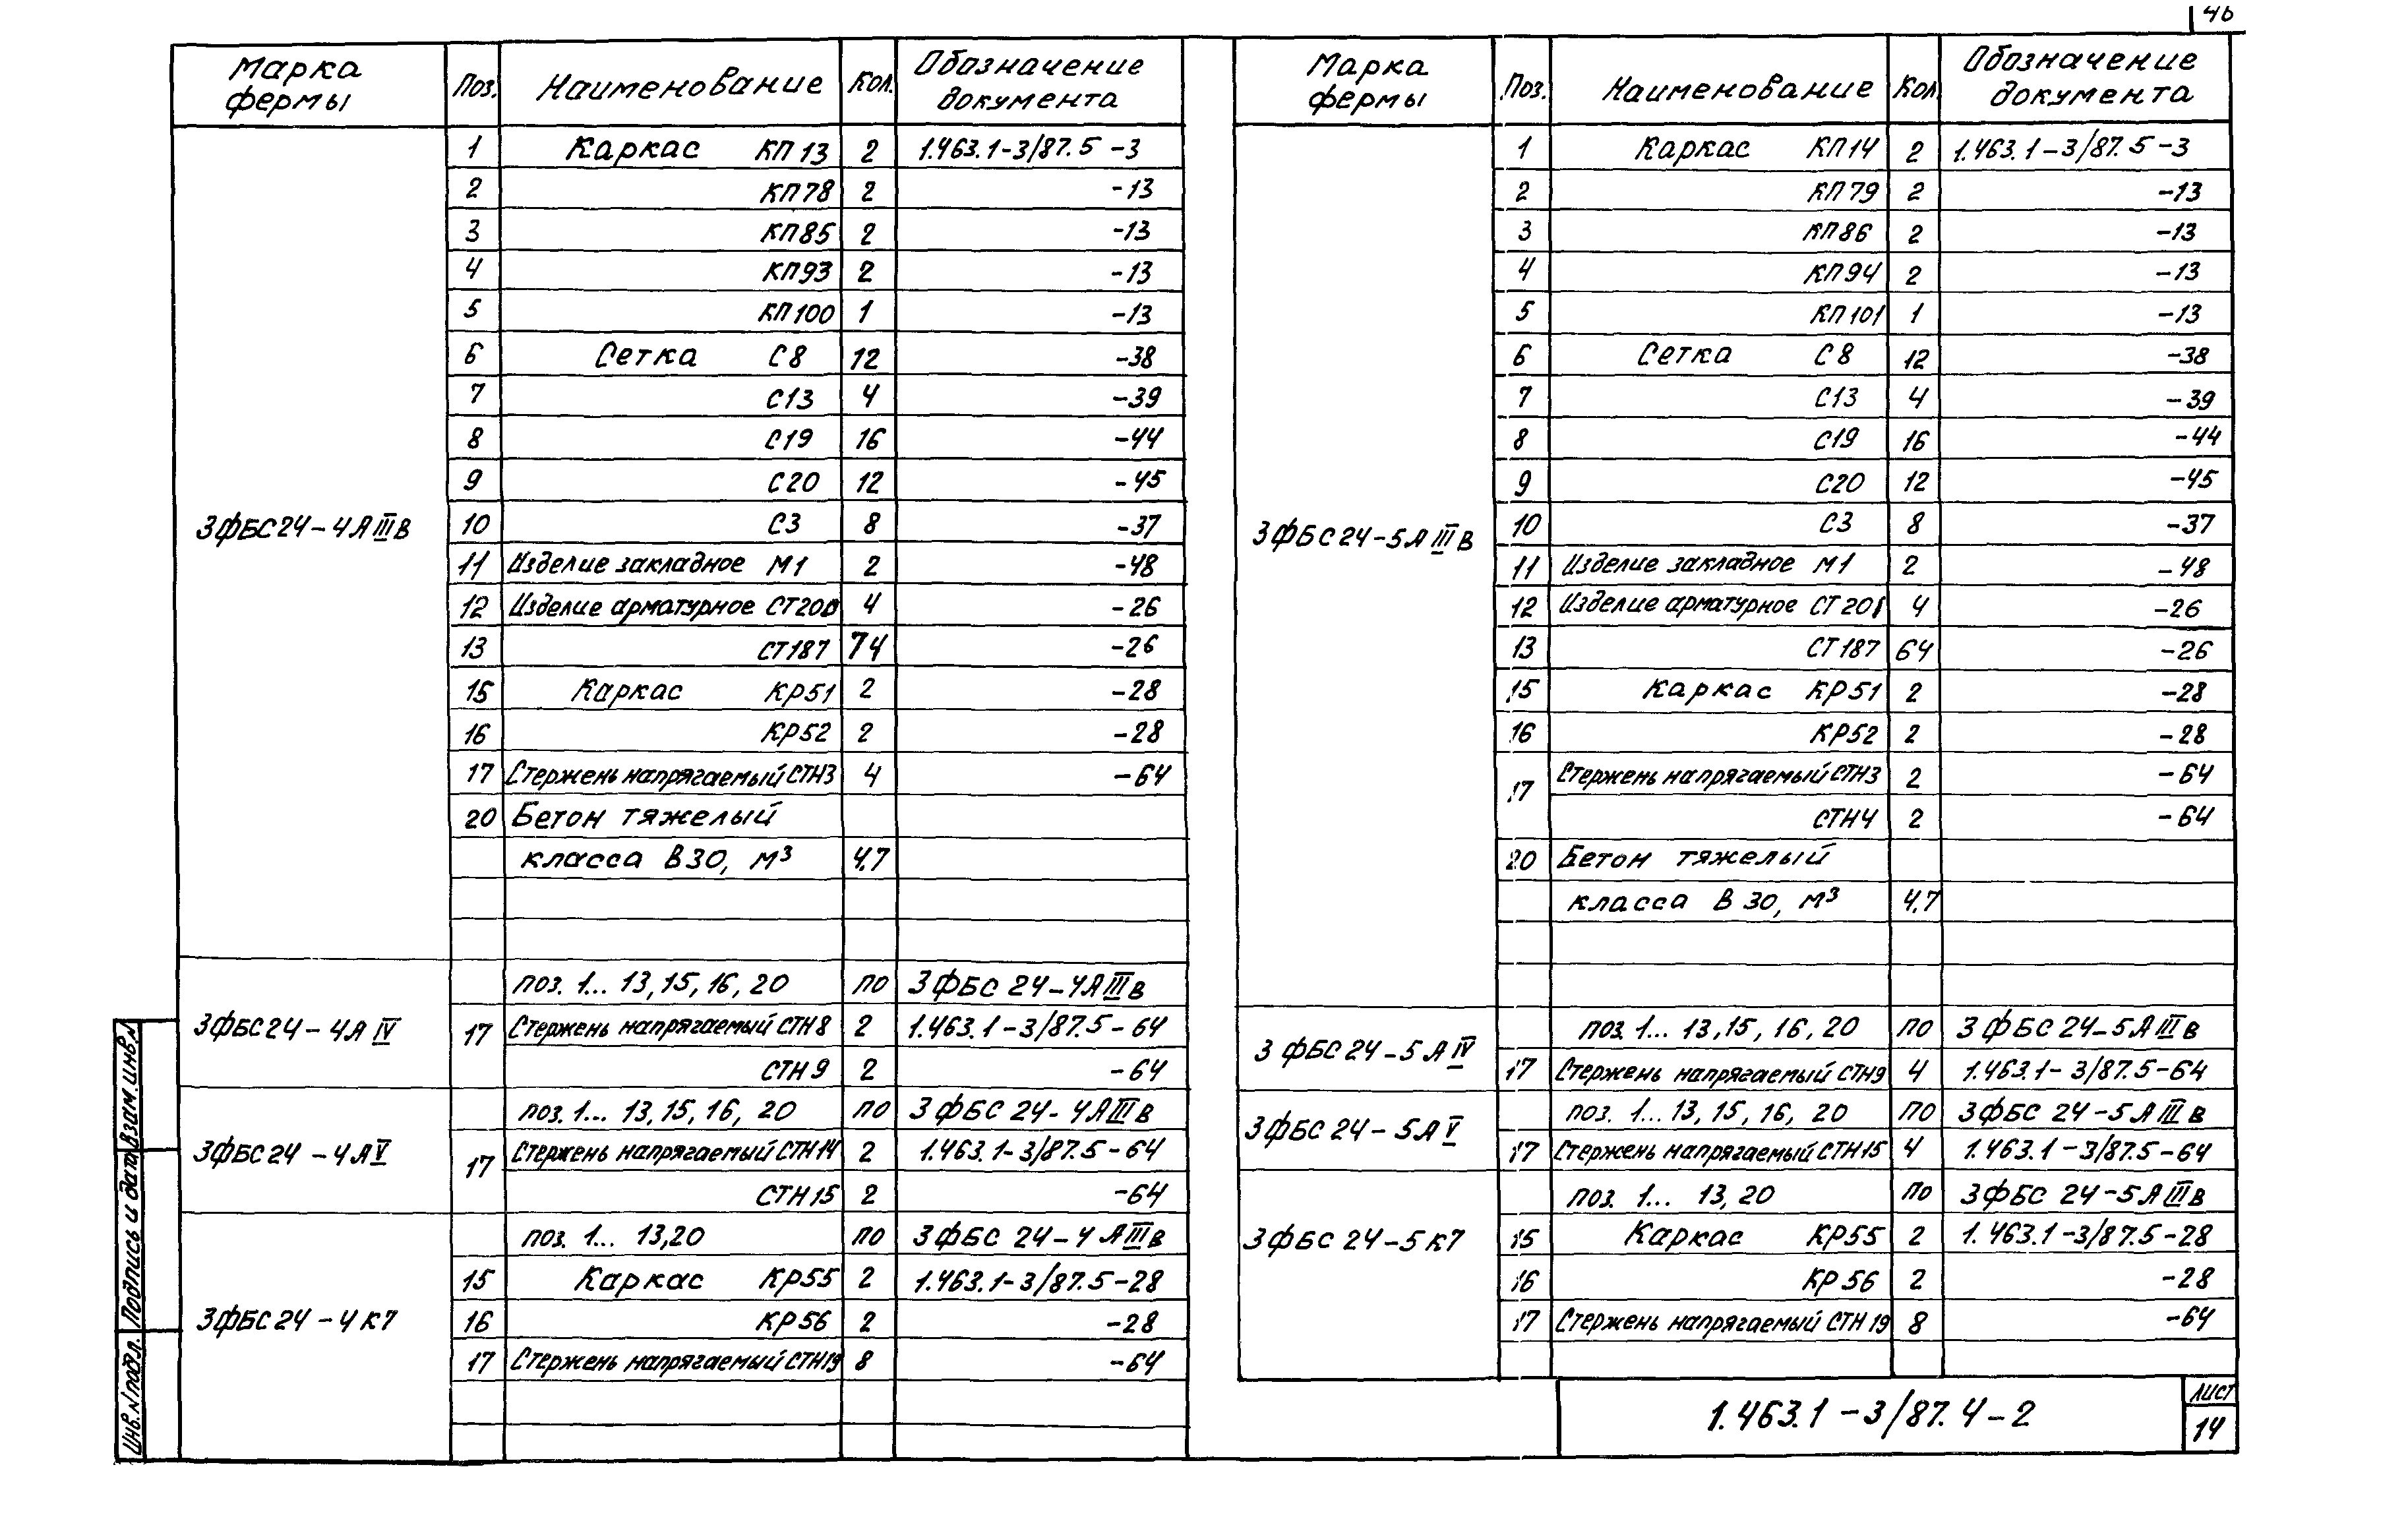 46
Марка фермы Поз. Наименование Кол. Обозначение документа
3ФБС24-4АIIIв
1 Каркас КП13 2 1.463.1-3/87.5 -3
2 КП78 2 -13
3 КП85 2 -13
4 КП93 2 -13
5 КП100 1 -13
6 Сетка С8 12 -38
7 С13 4 -39
8 С19 16 -44
9 С20 12 -45
10 С3 8 -37
11 Изделие закладное М1 2 -48
12 Изделие арматурное СТ200 4 -26
13 СТ187 74 -26
15 Каркас КР51 2 -28
16 КР52 2 -28
17 Стержень напрягаемый СТН3 4 -64
20 Бетон тяжелый
класса В30, м³ 4,7
3ФБС24-4АIV
поз. 1... 13, 15, 16, 20 по 3ФБС 24-4АIIIв
17 Стержень напрягаемый СТН8 2 1.463.1-3/87.5-64
СТН9 2 -64
3ФБС24-4АV
поз. 1... 13, 15, 16, 20 по 3ФБС 24-4АIIIв
17 Стержень напрягаемый СТН14 2 1.463.1-3/87.5-64
СТН15 2 -64
3ФБС24-4К7
поз. 1... 13,20 по 3ФБС 24-4АIIIв
15 Каркас КР55 2 1.463.1-3/87.5-28
16 КР56 2 -28
17 Стержень напрягаемый СТН19 8 -64
Марка фермы Поз. Наименование Кол. Обозначение документа
3ФБС24-5АIIIв
1 Каркас КП14 2 1.463.1-3/87.5-3
2 КП79 2 -13
3 КП86 2 -13
4 КП94 2 -13
5 КП101 1 -13
6 Сетка С8 12 -38
7 С13 4 -39
8 С19 16 -44
9 С20 12 -45
10 С3 8 -37
11 Изделие закладное М1 2 -48
12 Изделие арматурное СТ201 4 -26
13 СТ187 64 -26
15 Каркас КР51 2 -28
16 КР52 2 -28
17 Стержень напрягаемый СТН3 2 -64
СТН4 2 -64
20 Бетон тяжелый
класса В30, м³ 4,7
3ФБС24-5АIV
поз. 1... 13, 15, 16, 20 по 3ФБС 24-5АIIIв
17 Стержень напрягаемый СТН9 4 1.463.1-3/87.5-64
3ФБС24-5АV
поз. 1... 13, 15, 16, 20 по 3ФБС 24-5АIIIв
17 Стержень напрягаемый СТН15 4 1.463.1-3/87.5-64
3ФБС24-5К7
поз. 1... 13, 20 по 3ФБС 24-5АIIIв
15 Каркас КР55 2 1.463.1-3/87.5-28
16 КР56 2 -28
17 Стержень напрягаемый СТН19 8 -64
Инв.N подл. Подпись и дата Взам.инв.N
1.463.1-3/87.4-2
Лист
14